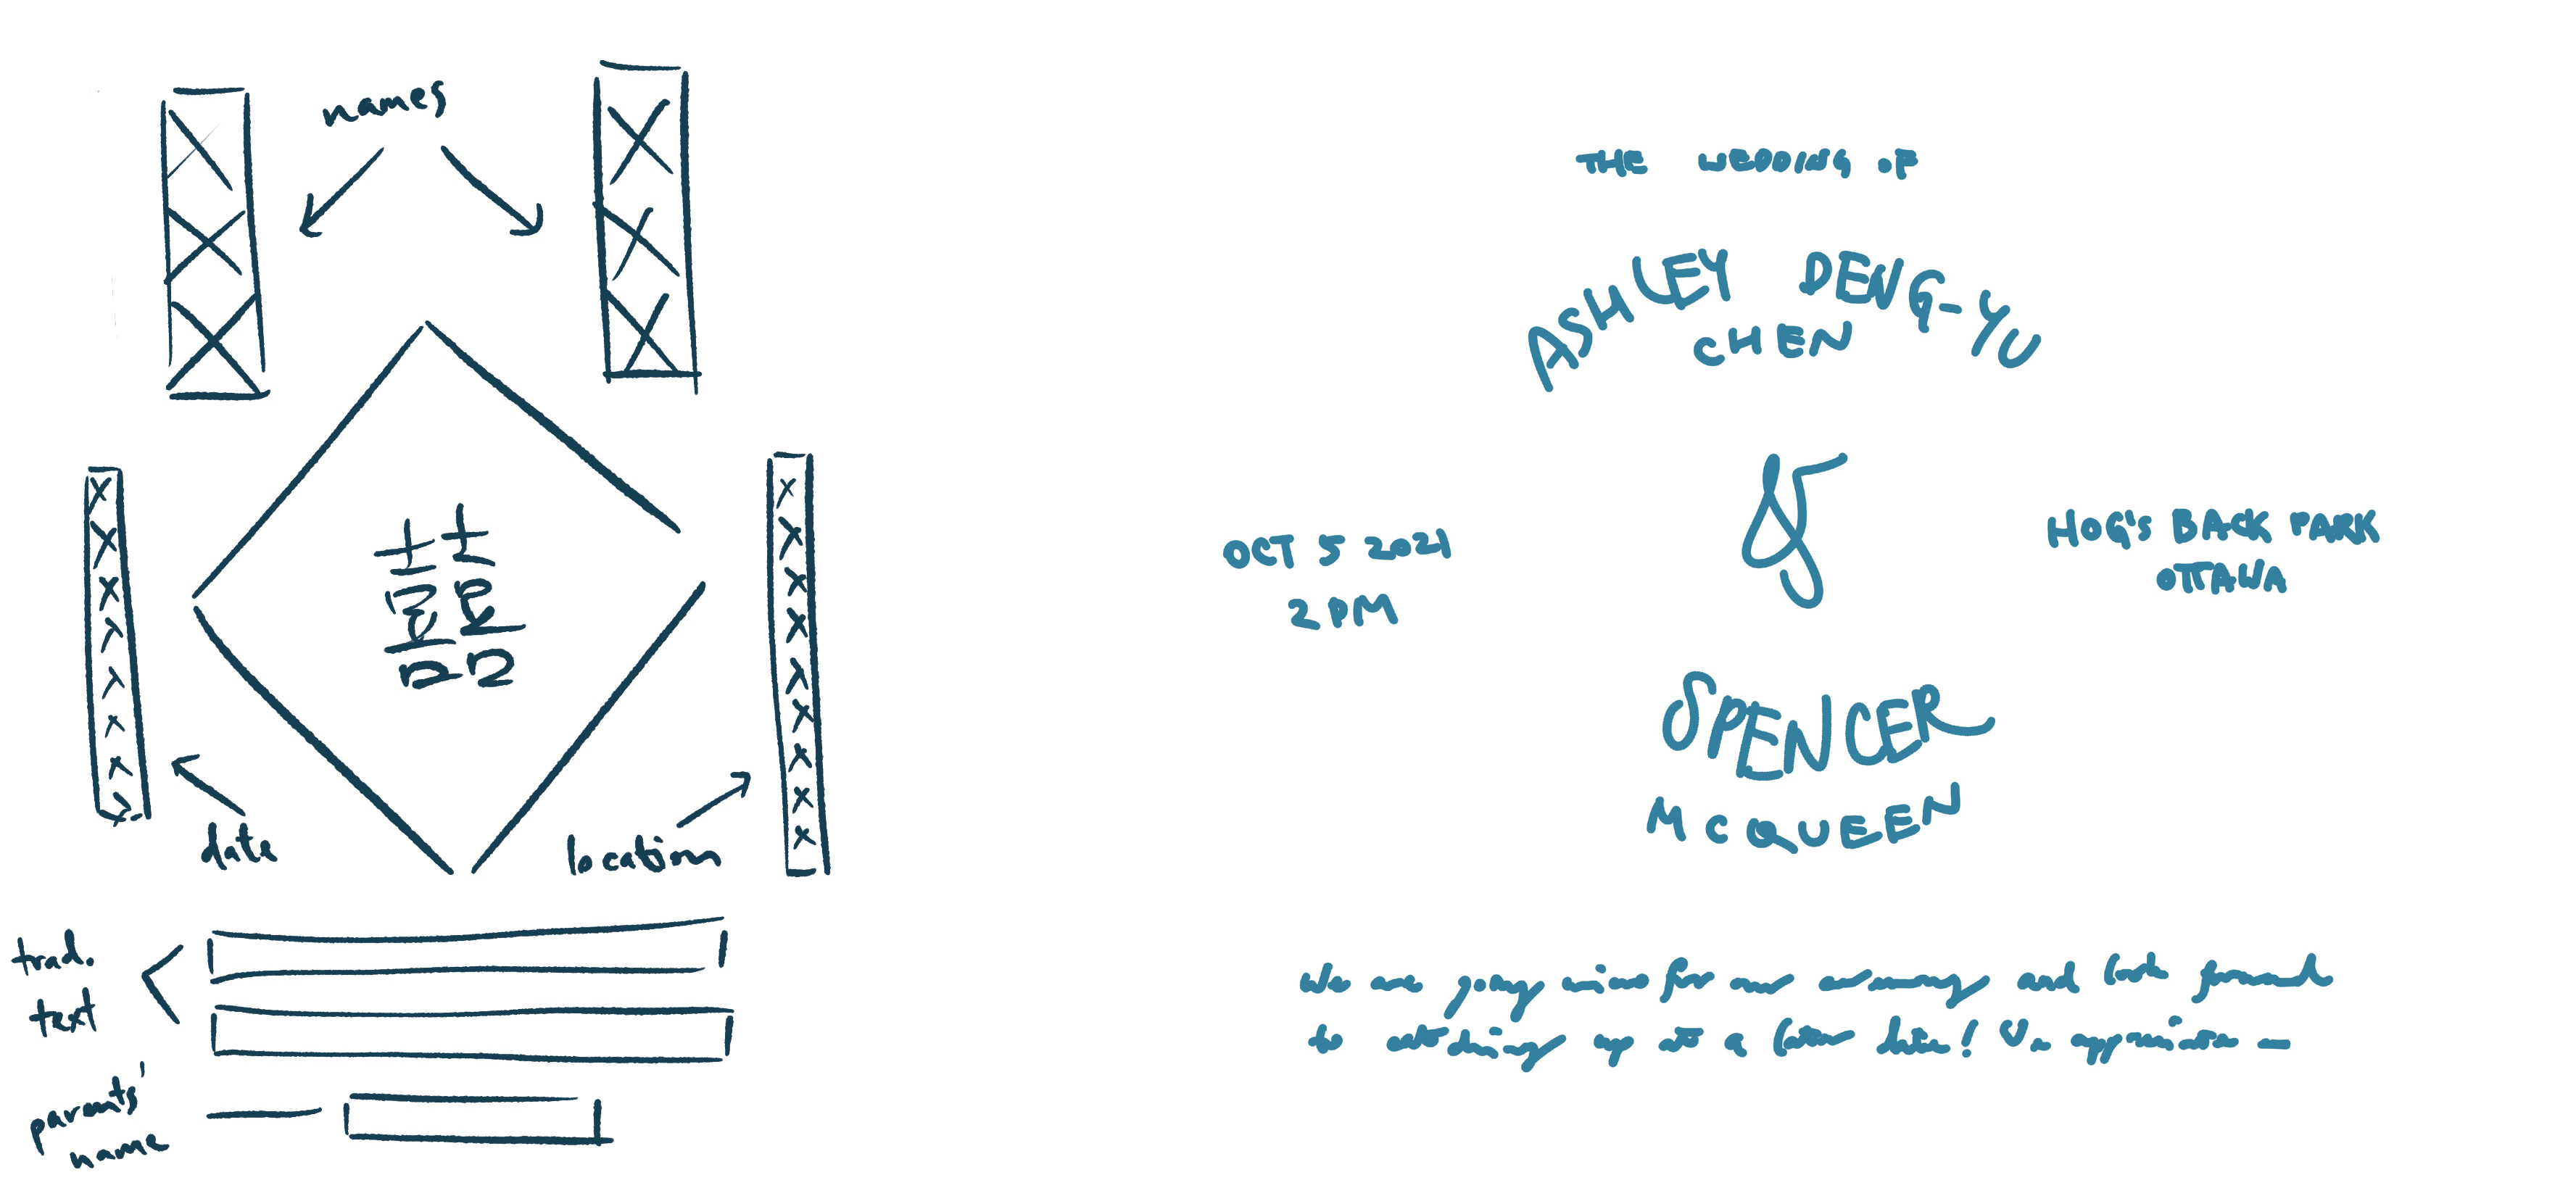 names
囍
date
location
trad.
text
parents'
name
THE WEDDING OF
ASHLEY DENG-YU
CHEN
&
OCT 5 2021
2 PM
HOG'S BACK PARK
OTTAWA
SPENCER
MCQUEEN
We are going for our and look forward
to catching up at a later date! We appreciate —